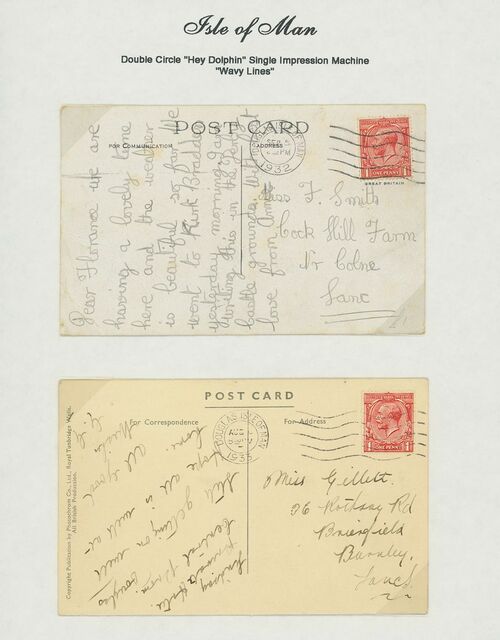 Isle of Man
Double Circle "Hey Dolphin" Single Impression Machine
"Wavy Lines"
POST CARD
FOR COMMUNICATION
ADDRESS
DOUGLAS ISLE OF MAN
SEP
PM
1932
ONE PENNY
GREAT BRITAIN
Dear Florence we are
having a lovely time
here and the weather
is beautiful so far. We
went to Kirk Braddan
yesterday morning. I am
writing this in the
castle grounds. With
love from
Miss F. Smith
Cock Hill Farm
Nr Colne
Lanc
POST CARD
For Correspondence
For Address
DOUGLAS ISLE OF MAN
193
ONE PENNY
Copyright Publication by Photochrom Co., Ltd., Royal Tunbridge Wells.
All British Production.
Private Hotel
Central Prom.
Douglas
Still getting on well
hope all is well at
home.
All good
Miss Gillett.
26 Rothsay Rd
Brierfield
Burnley.
Lancs